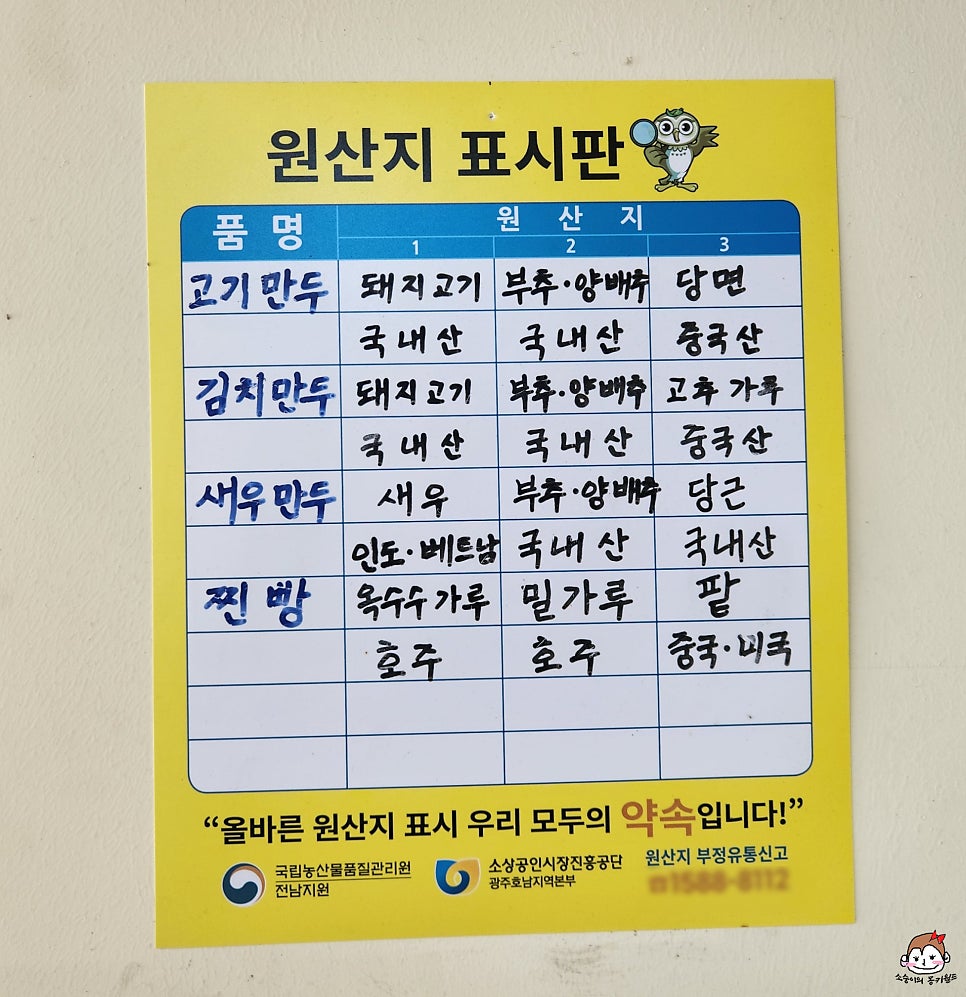 원산지 표시판
품 명 원 산 지
1 2 3
고기만두 돼지고기 부추·양배추 당면
국내산 국내산 중국산
김치만두 돼지고기 부추·양배추 고추가루
국내산 국내산 중국산
새우만두 새우 부추·양배추 당근
인도·베트남 국내산 국내산
찐빵 옥수수가루 밀가루 팥
호주 호주 중국·미국
“올바른 원산지 표시 우리 모두의 약속입니다!”
국립농산물품질관리원
전남지원
소상공인시장진흥공단
광주호남지역본부
원산지 부정유통신고
☎1588-8112
소승이의 몽키월드